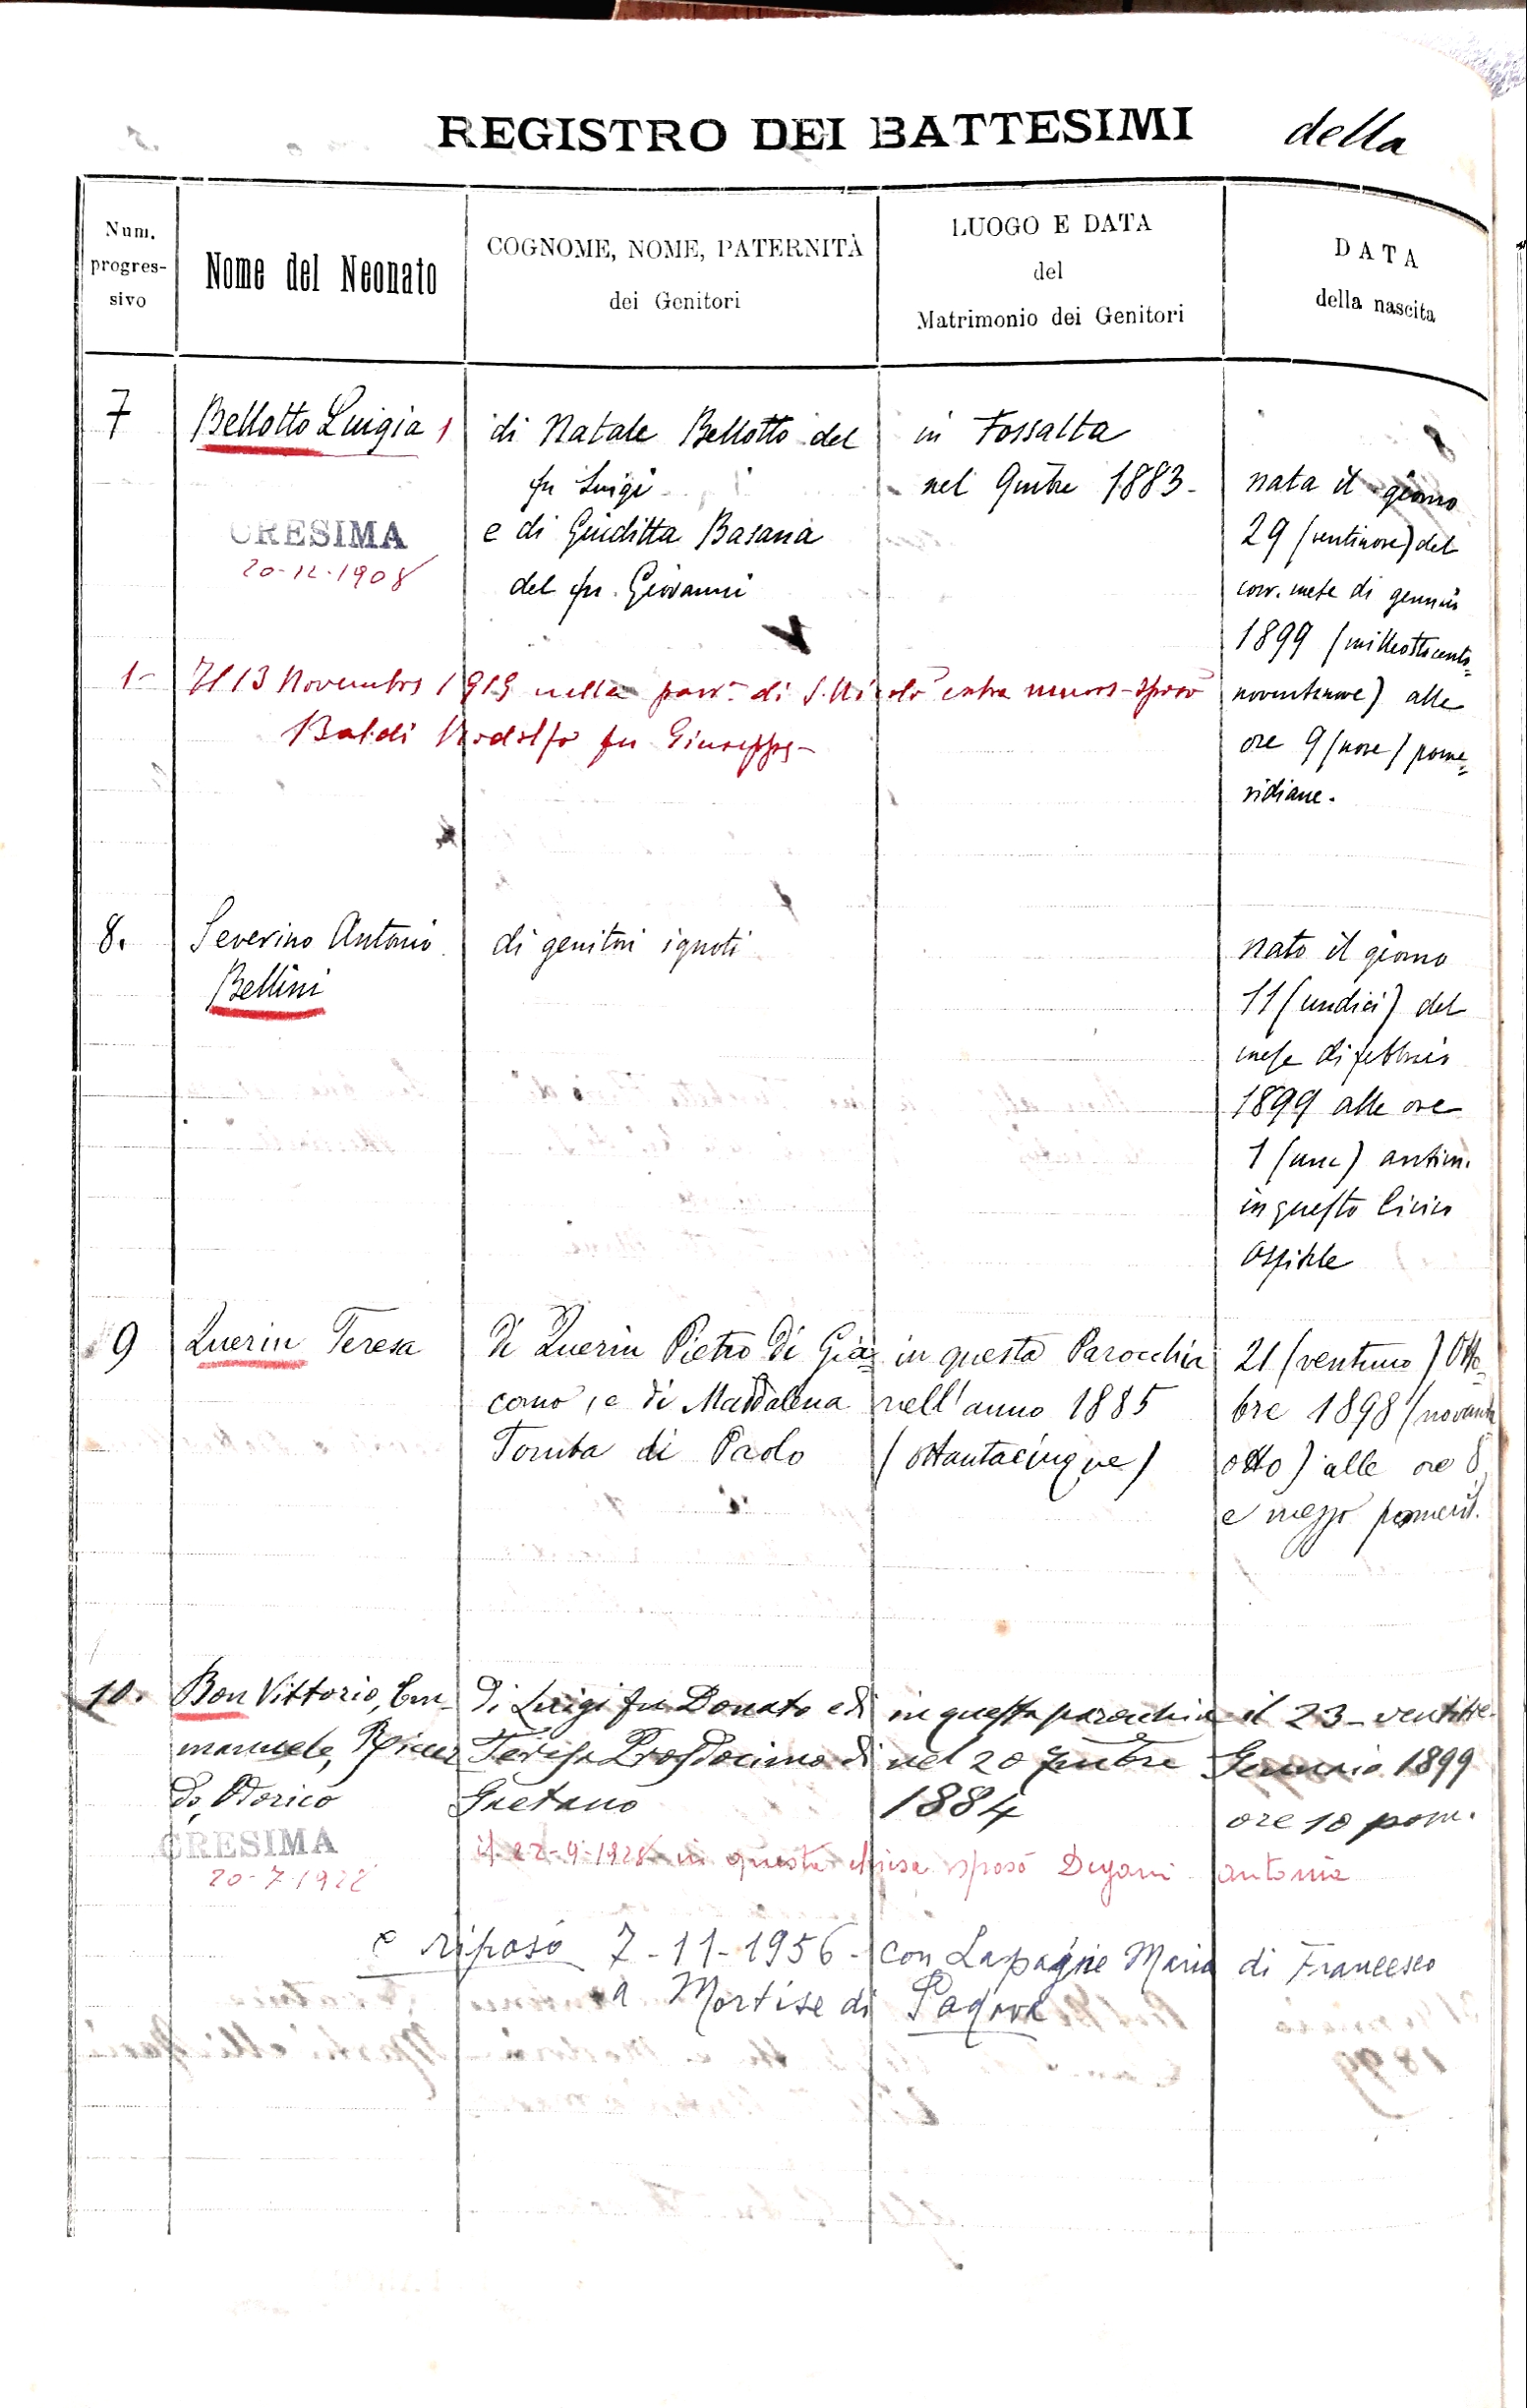 REGISTRO DEI BATTESIMI della
Num.
progres-
sivo
Nome del Neonato
COGNOME, NOME, PATERNITÀ
dei Genitori
LUOGO E DATA
del
Matrimonio dei Genitori
DATA
della nascita
7
Bellotto Luigia 1
CRESIMA
20-12-1908
di Natale Bellotto del
fu Luigi
e di Giuditta Basana
del fu. Giovanni
in Fossalta
nel 9mbre 1883-
nata il giorno
29 (ventinove) del
corr. mese di gennaio
1899 (milleottocento=
novantanove) alle
ore 9 (nove) pome=
ridiane.
1- Il 13 Novembre 1919 nella parr. di S. Nicolò extra muros - sposò
Baldi Rodolfo fu Giuseppe-
8.
Severino Antonio
Bellini
di genitori ignoti
nato il giorno
11 (undici) del
mese di febbraio
1899 alle ore
1 (una) antim.
in questo Civico
Ospitale
9
Querin Teresa
Di Querin Pietro Di Gia=
como, e di Maddalena
Tomba di Paolo
in questa Parocchia
nell'anno 1885
(ottantacinque)
21 (ventuno) Otto=
bre 1898 (novanta
otto) alle ore 8
e mezzo pomerid.
10.
Bon Vittorio, Em-
manuele,
do, Odorico
CRESIMA
20-7-1922
Di Luigi fu Donato e di
Teresa Prosdocimo di
Gaetano
in questa parocchia
nel 20 9mbre
1884
il 23 - ventitre-
Gennaio 1899
ore 10 pom.
il 22-9-1928 in questa chiesa sposò Degani Antonia
e riposò 7-11-1956- con Maria di Francesco
a Mortise di Padova